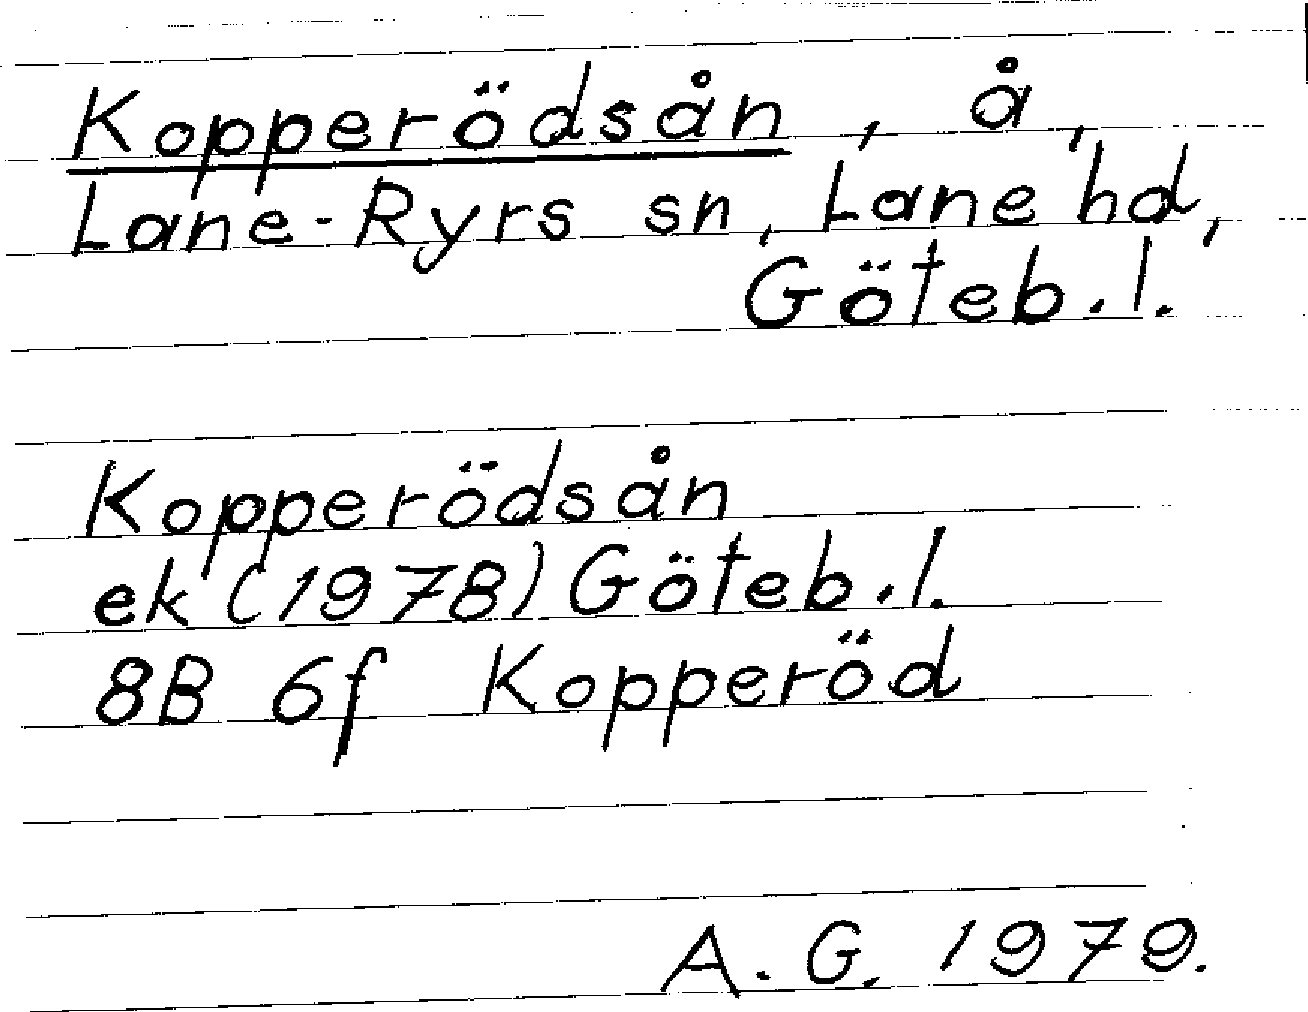 Kopperödsån, å,
Lane-Ryrs sn, Lane hd,
Göteb.l.
Kopperödsån
ek (1978) Göteb.l.
8B 6f Kopperöd
A.G. 1979.